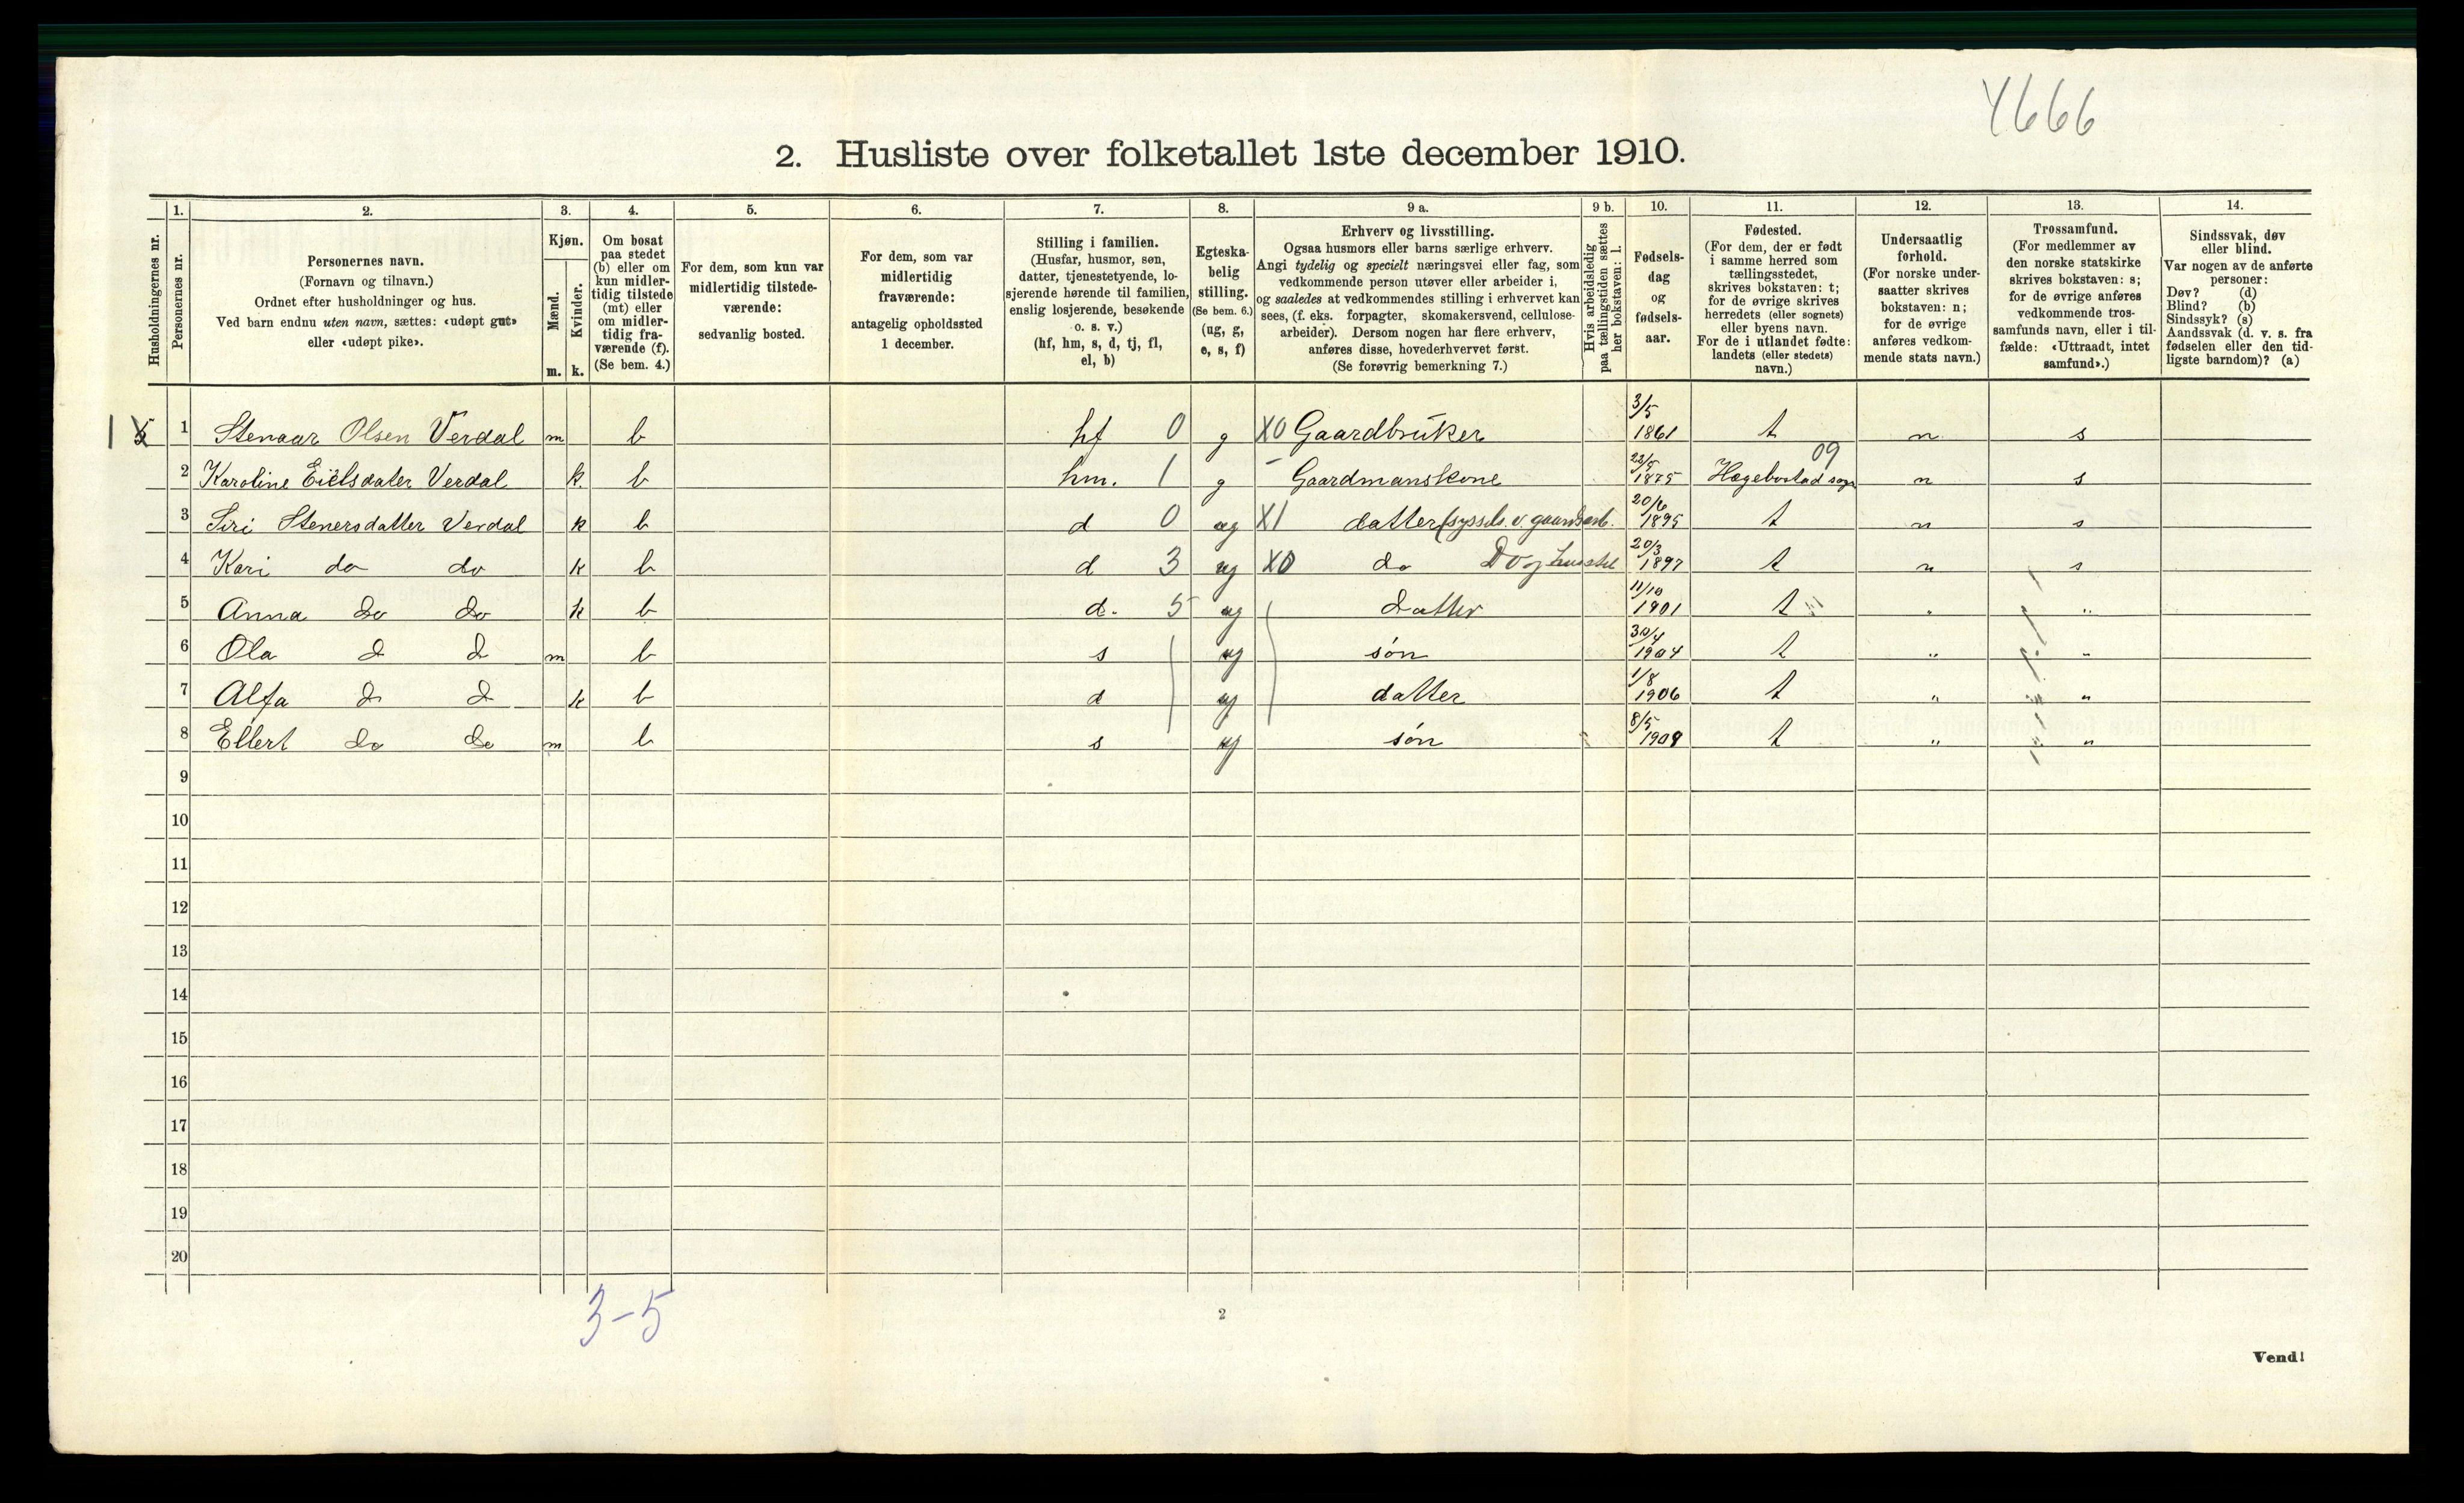 4666
2. Husliste over folketallet 1ste december 1910.
Husholdningernes nr.
1.
Personernes nr.
2.
Personernes navn.
(Fornavn og tilnavn.)
Ordnet efter husholdninger og hus.
Ved barn endnu uten navn, sættes: «udøpt gut»
eller «udøpt pike».
3.
Kjøn.
Mænd.
Kvinder.
m. k.
4.
Om bosat
paa stedet
(b) eller om
kun midler-
tidig tilstede
(mt) eller
om midler-
tidig fra-
værende (f).
(Se bem. 4.)
5.
For dem, som kun var
midlertidig tilstede-
værende:
sedvanlig bosted.
6.
For dem, som var
midlertidig
fraværende:
antagelig opholdssted
1 december.
7.
Stilling i familien.
(Husfar, husmor, søn,
datter, tjenestetyende, lo-
sjerende hørende til familien,
enslig losjerende, besøkende
o. s. v.)
(hf, hm, s, d, tj, fl,
el, b)
8.
Egteska-
belig
stilling.
(Se bem. 6.)
(ug, g,
e, s, f)
9 a.
Erhverv og livsstilling.
Ogsaa husmors eller barns særlige erhverv.
Angi tydelig og specielt næringsvei eller fag, som
vedkommende person utøver eller arbeider i,
og saaledes at vedkommendes stilling i erhvervet kan
sees, (f. eks. forpagter, skomakersvend, cellulose-
arbeider). Dersom nogen har flere erhverv,
anføres disse, hovederhvervet først.
(Se forøvrig bemerkning 7.)
9 b.
Hvis arbeidsledig
paa tællingstiden sættes
her bokstaven: l.
10.
Fødsels-
dag
og
fødsels-
aar.
11.
Fødested.
(For dem, der er født
i samme herred som
tællingsstedet,
skrives bokstaven: t;
for de øvrige skrives
herredets (eller sognets)
eller byens navn.
For de i utlandet fødte:
landets (eller stedets)
navn.)
12.
Undersaatlig
forhold.
(For norske under-
saatter skrives
bokstaven: n;
for de øvrige
anføres vedkom-
mende stats navn.)
13.
Trossamfund.
(For medlemmer av
den norske statskirke
skrives bokstaven: s;
for de øvrige anføres
vedkommende tros-
samfunds navn, eller i til-
fælde: «Uttraadt, intet
samfund».)
14.
Sindssvak, døv
eller blind.
Var nogen av de anførte
personer:
Døv? (d)
Blind? (b)
Sindssyk? (s)
Aandssvak (d. v. s. fra
fødselen eller den tid-
ligste barndom)? (a)
1 1 Stenaar Olsen Verdal m b hf 0 g X0 Gaardbruker 3/5 1861 t n s
2 Karoline Eielsdater Verdal k. b hm. 1 g - Gaardmanskone 1875 Hægebostad sogn 09 n s
3 Siri Stenersdatter Verdal k b d 0 ug X1 datter (syssels. v. gaardsarb. 20/6 1895 t n s
4 Kari do do k b d 3 ug X0 do Do og husstel 20/3 1897 t n s
5 Anna do do k b d. 5 ug datter 11/10 1901 t " "
6 Ola d d m b s ug søn 30/4 1904 t " "
7 Alfa d d k b d ug datter 1/8 1906 t " "
8 Ellert do do m b s ug søn 8/5 1909 t " "
9
10
11
12
13
14
15
16
17
18
19
20
3-5
2
Vend!